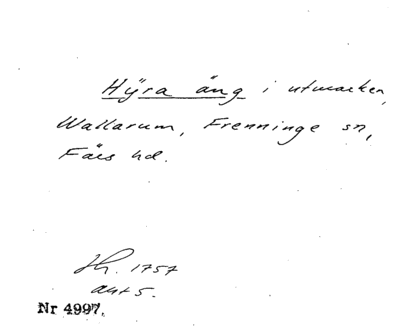 Hÿra äng i utmarken,
Wallarum, Frenninge sn,
Färs hd.
Jh. 1757
akt 5.
Nr 4997.